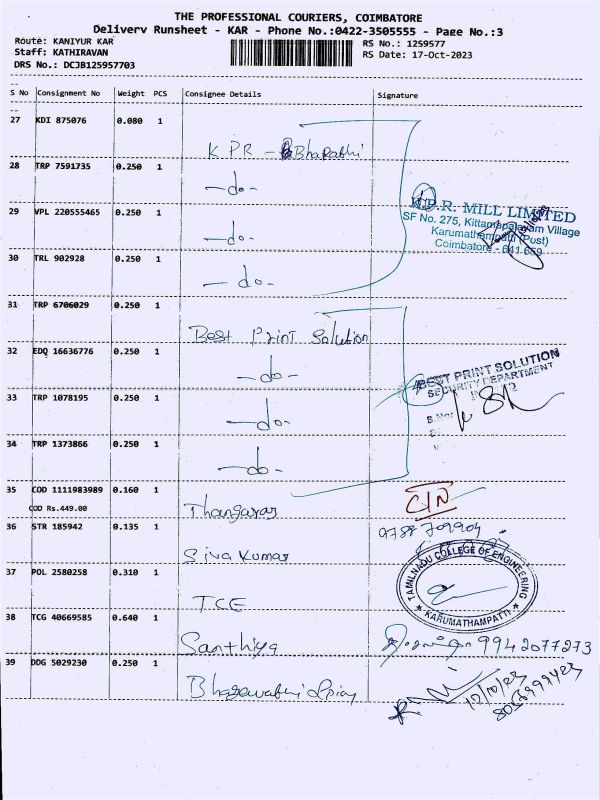 THE PROFESSIONAL COURIERS, COIMBATORE
Delivery Runsheet - KAR - Phone No.:0422-3505555 - Page No.:3
Route: KANIYUR KAR
RS No.: 1259577
Staff: KATHIRAVAN
RS Date: 17-Oct-2023
DRS No.: DCJB125957703
S No Consignment No Weight PCS Consignee Details Signature
27 KDI 875076 0.080 1
K.P.R - Bharathi
28 TRP 7591735 0.250 1
-do-
29 VPL 220555465 0.250 1
K.P.R. MILL LIMITED
SF No. 275, Kittampalayam Village
Karumathampatti (Post)
Coimbatore - 641 659
-do-
30 TRL 902928 0.250 1
-do-
31 TRP 6706029 0.250 1
Best Print Solution
32 EDQ 16636776 0.250 1
-do-
BEST PRINT SOLUTION
SECURITY DEPARTMENT
33 TRP 1078195 0.250 1
-do-
34 TRP 1373866 0.250 1
-do-
35 COD 1111983989 0.160 1
COD Rs.449.00
Thangaraj
36 STR 185942 0.135 1
Siva Kumar
37 POL 2580258 0.310 1
TAMILNADU COLLEGE OF ENGINEERING
KARUMATHAMPATTI
TCE
38 TCG 40669585 0.640 1
Santhiya
9942077273
39 DDG 5029230 0.250 1